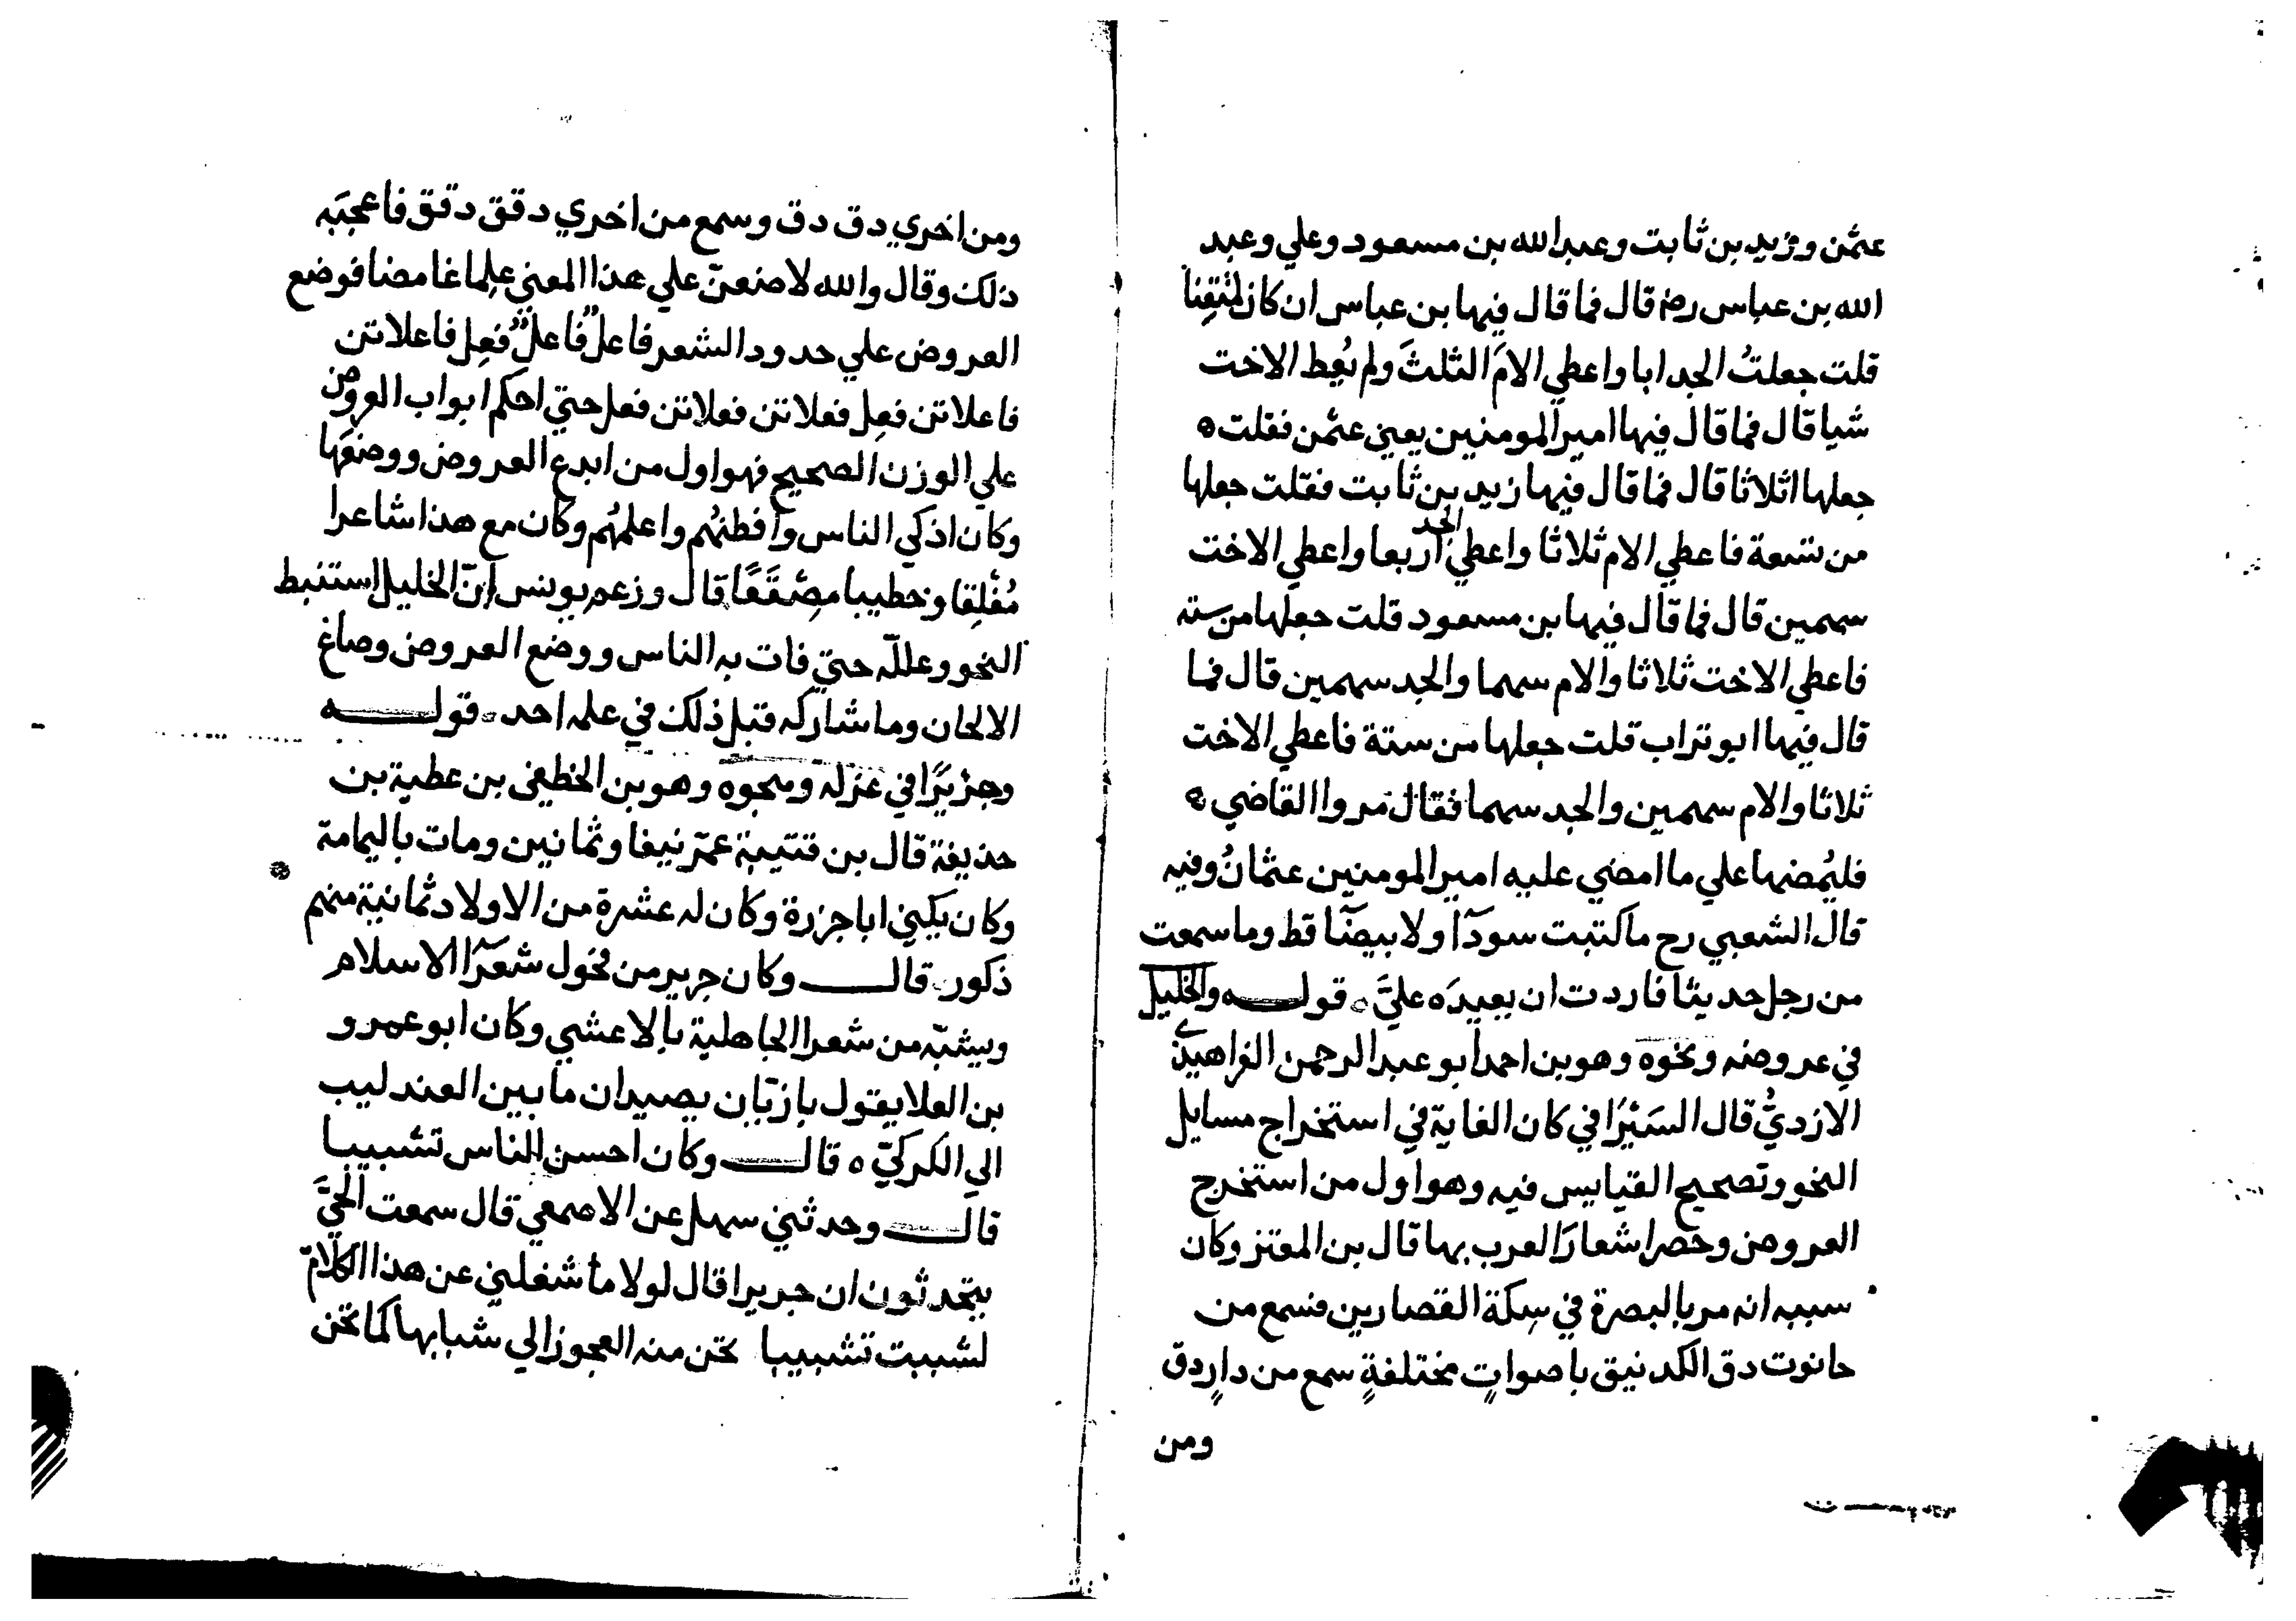 عثمن وزيد بن ثابت وعبد الله بن مسعود وعلي وعبد
الله بن عباس رضه قال فما قال فيها بن عباس ان كان لمتقِنا
قلت جعلتُ الجد ابا واعطي الامَ الثلثَ ولم يُعِط الاخت
شيا قال فما قال فيها امير المومنين يعني عثمن فقلت ه
جعلها اثلاثا قال فما قال فيها زيد بن ثابت فقلت جعلها
من تسعة فاعطي الام ثلاثا واعطي الجد اربعا واعطي الاخت
سهمين قال فما قال فيها بن مسعود قلت جعلها من سته
فاعطي الاخت ثلاثا والام سهما والجد سهمين قال فما
قال فيها ابو تراب قلت جعلها من ستة فاعطي الاخت
ثلاثا والام سهمين والجد سهما فقال مروا القاضي ه
فليُمضها علي ما امضي عليه امير المومنين عثمانُ وفيه
قال الشعبي رح ما كتبت سودآ ولا بيضآ قط وما سمعت
من رجل حديثا فاردت ان يعيدَه عليَّ ه قولـــه والخليل
في عروضه ونحوه وهو بن احمد ابو عبد الرحمن الفراهيدي
الازديُّ قال السَيْرَافي كان الغاية في استخراج مسايل
النحو وتصحيح القياس فيه وهو اول من استخرج
العروض وحصر اشعارَ العرب بها قال بن المعتز وكان
سببه انه مر بالبصرة في سِكة القصارين فسمع من
حانوت دق الكدنيق باصواتٍ مختلفةٍ سمع من دارٍ دق
ومن
ومن اخري دق دق وسمع من اخري دقق دقق فاعجبَه
ذلك وقال والله لاضعنّ علي هذا المعني علما غامضا فوضع
العروض علي حدود الشعر فاعلٌ فاعلٌ فعِل فاعلاتن
فاعلاتن فعِل فعلاتن فعلاتن فعل حتي احكم ابواب العروض
علي الوزن الصحيح فهو اول من ابدع العروض ووضعَها
وكان اذكي الناس وافطنهُم واعلمهُم وكان مع هذا شاعرا
مُفْلِقا وخطيبا مِصْقَعًا قال وزعم يونس انّ الخليل استنبط
النحو وعللَه حتي فات به الناس ووضع العروض وصاغ
الالحان وما شاركه قبل ذلك في علمه احد ۰ قولــــه
وجرْيرًا في غزله وهجوه وهو بن الخطفي بن عطية بن
حذيفة قال بن قتيبة عمّر نيفا وثمانين ومات باليمامة
وكان يكني ابا حزرة وكان له عشرة من الاولاد ثمانية منهم
ذكور ۰ قالـــــ وكان جرير من فحول شعرآ الاسلام
ويشبّه من شعرا الجاهلية بالاعشي وكان ابو عمرو
بن العلا يقول بازيّان يصيدان ما بين العندليب
الي الكركيّ ه قالـــــ وكان احسن الناس تشبيبا
قالـــــ وحدثني سهل عن الاصمعي قال سمعت الحيَّ
يتحدثون ان جريرا قال لولا ما شغلني عن هذا الكلام
لشببت تشبيبا تحن منه العجوز الي شبابها كما تحن